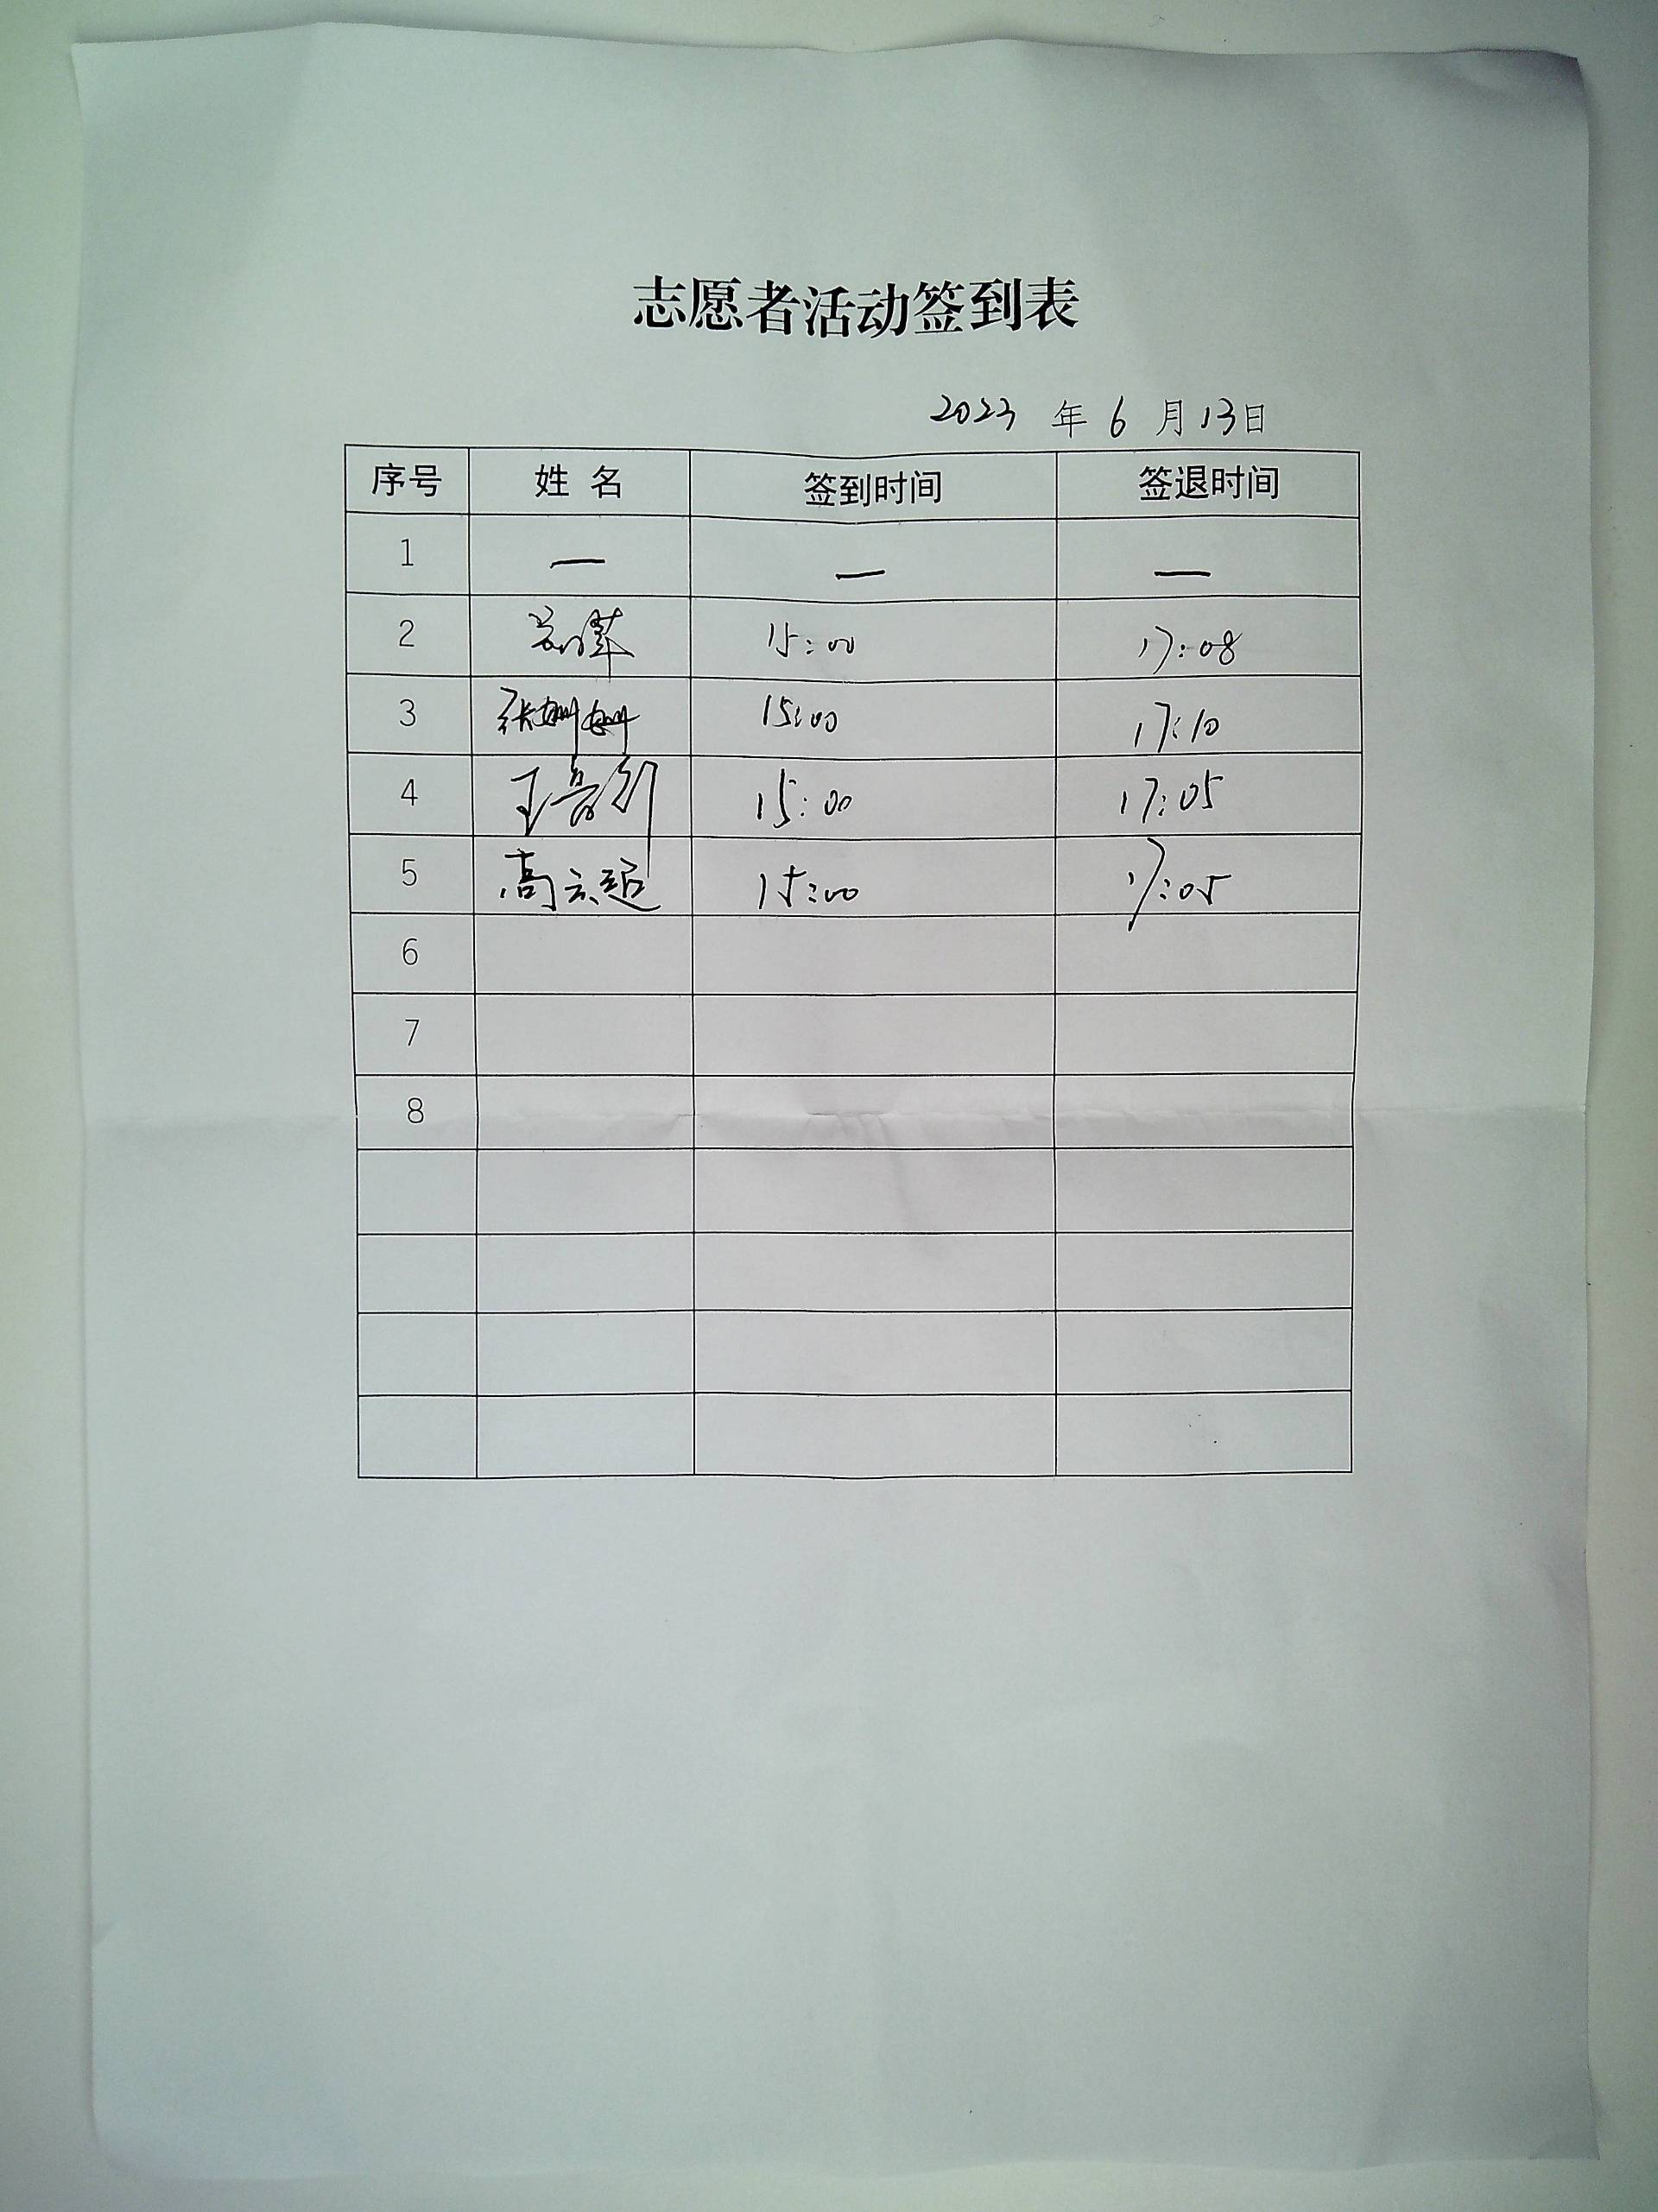 志愿者活动签到表
2023 年 6 月 13日
序号 姓 名 签到时间 签退时间
1 — — —
2 15:00 17:08
3 张姗姗 15:00 17:10
4 王 15:00 17:05
5 高云超 15:00 17:05
6
7
8